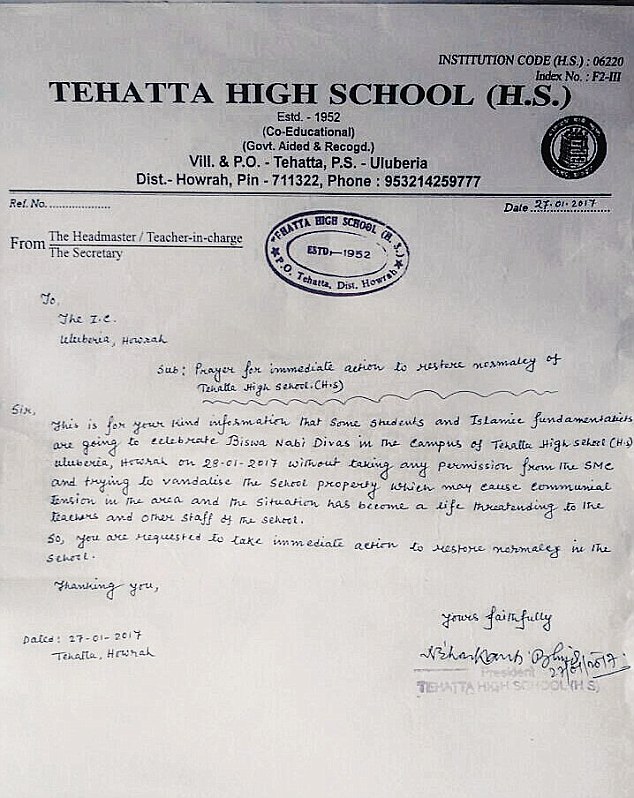 INSTITUTION CODE (H.S.) : 06220
Index No. : F2-III
TEHATTA HIGH SCHOOL (H.S.)
Estd. - 1952
(Co-Educational)
(Govt. Aided & Recogd.)
Vill. & P.O. - Tehatta, P.S. - Uluberia
Dist.- Howrah, Pin - 711322, Phone : 953214259777
Ref. No....................
Date 27.01.2017
From The Headmaster / Teacher-in-charge
The Secretary
TEHATTA HIGH SCHOOL (H.S.)
ESTD.—1952
P.O. Tehatta, Dist. Howrah
To,
The I.C.
Uluberia, Howrah
Sub: Prayer for immediate action to restore normalcy of
Tehatta High School.(H.S)
Sir,
This is for your kind information that some students and Islamic fundamentalists
are going to celebrate Biswa Nabi Divas in the campus of Tehatta High School (H.S)
Uluberia, Howrah on 28-01-2017 without taking any permission from the SMC
and trying to vandalise the school property which may cause communal
tension in the area and the situation has become a life threatending to the
teachers and other staff of the school.
So, you are requested to take immediate action to restore normalcy in the
school.
Thanking you,
Yours faithfully
Dated: 27-01-2017
Tehatta, Howrah
27/01/2017
President
TEHATTA HIGH SCHOOL (H.S)